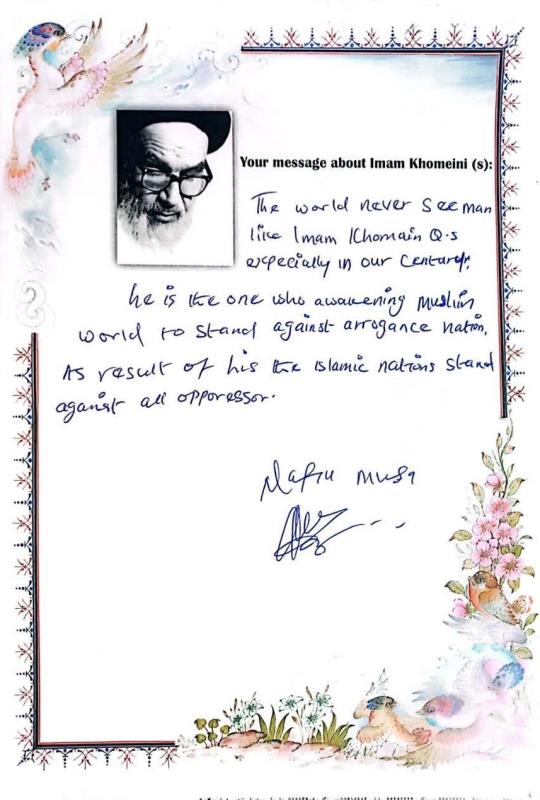 Your message about Imam Khomeini (s):
The world never see man
like Imam Khomain Q.s
especially in our Century.
he is the one who awakening muslim
world to stand against arrogance nation.
As result of his the islamic nations stand
against all opporessor.
Musa